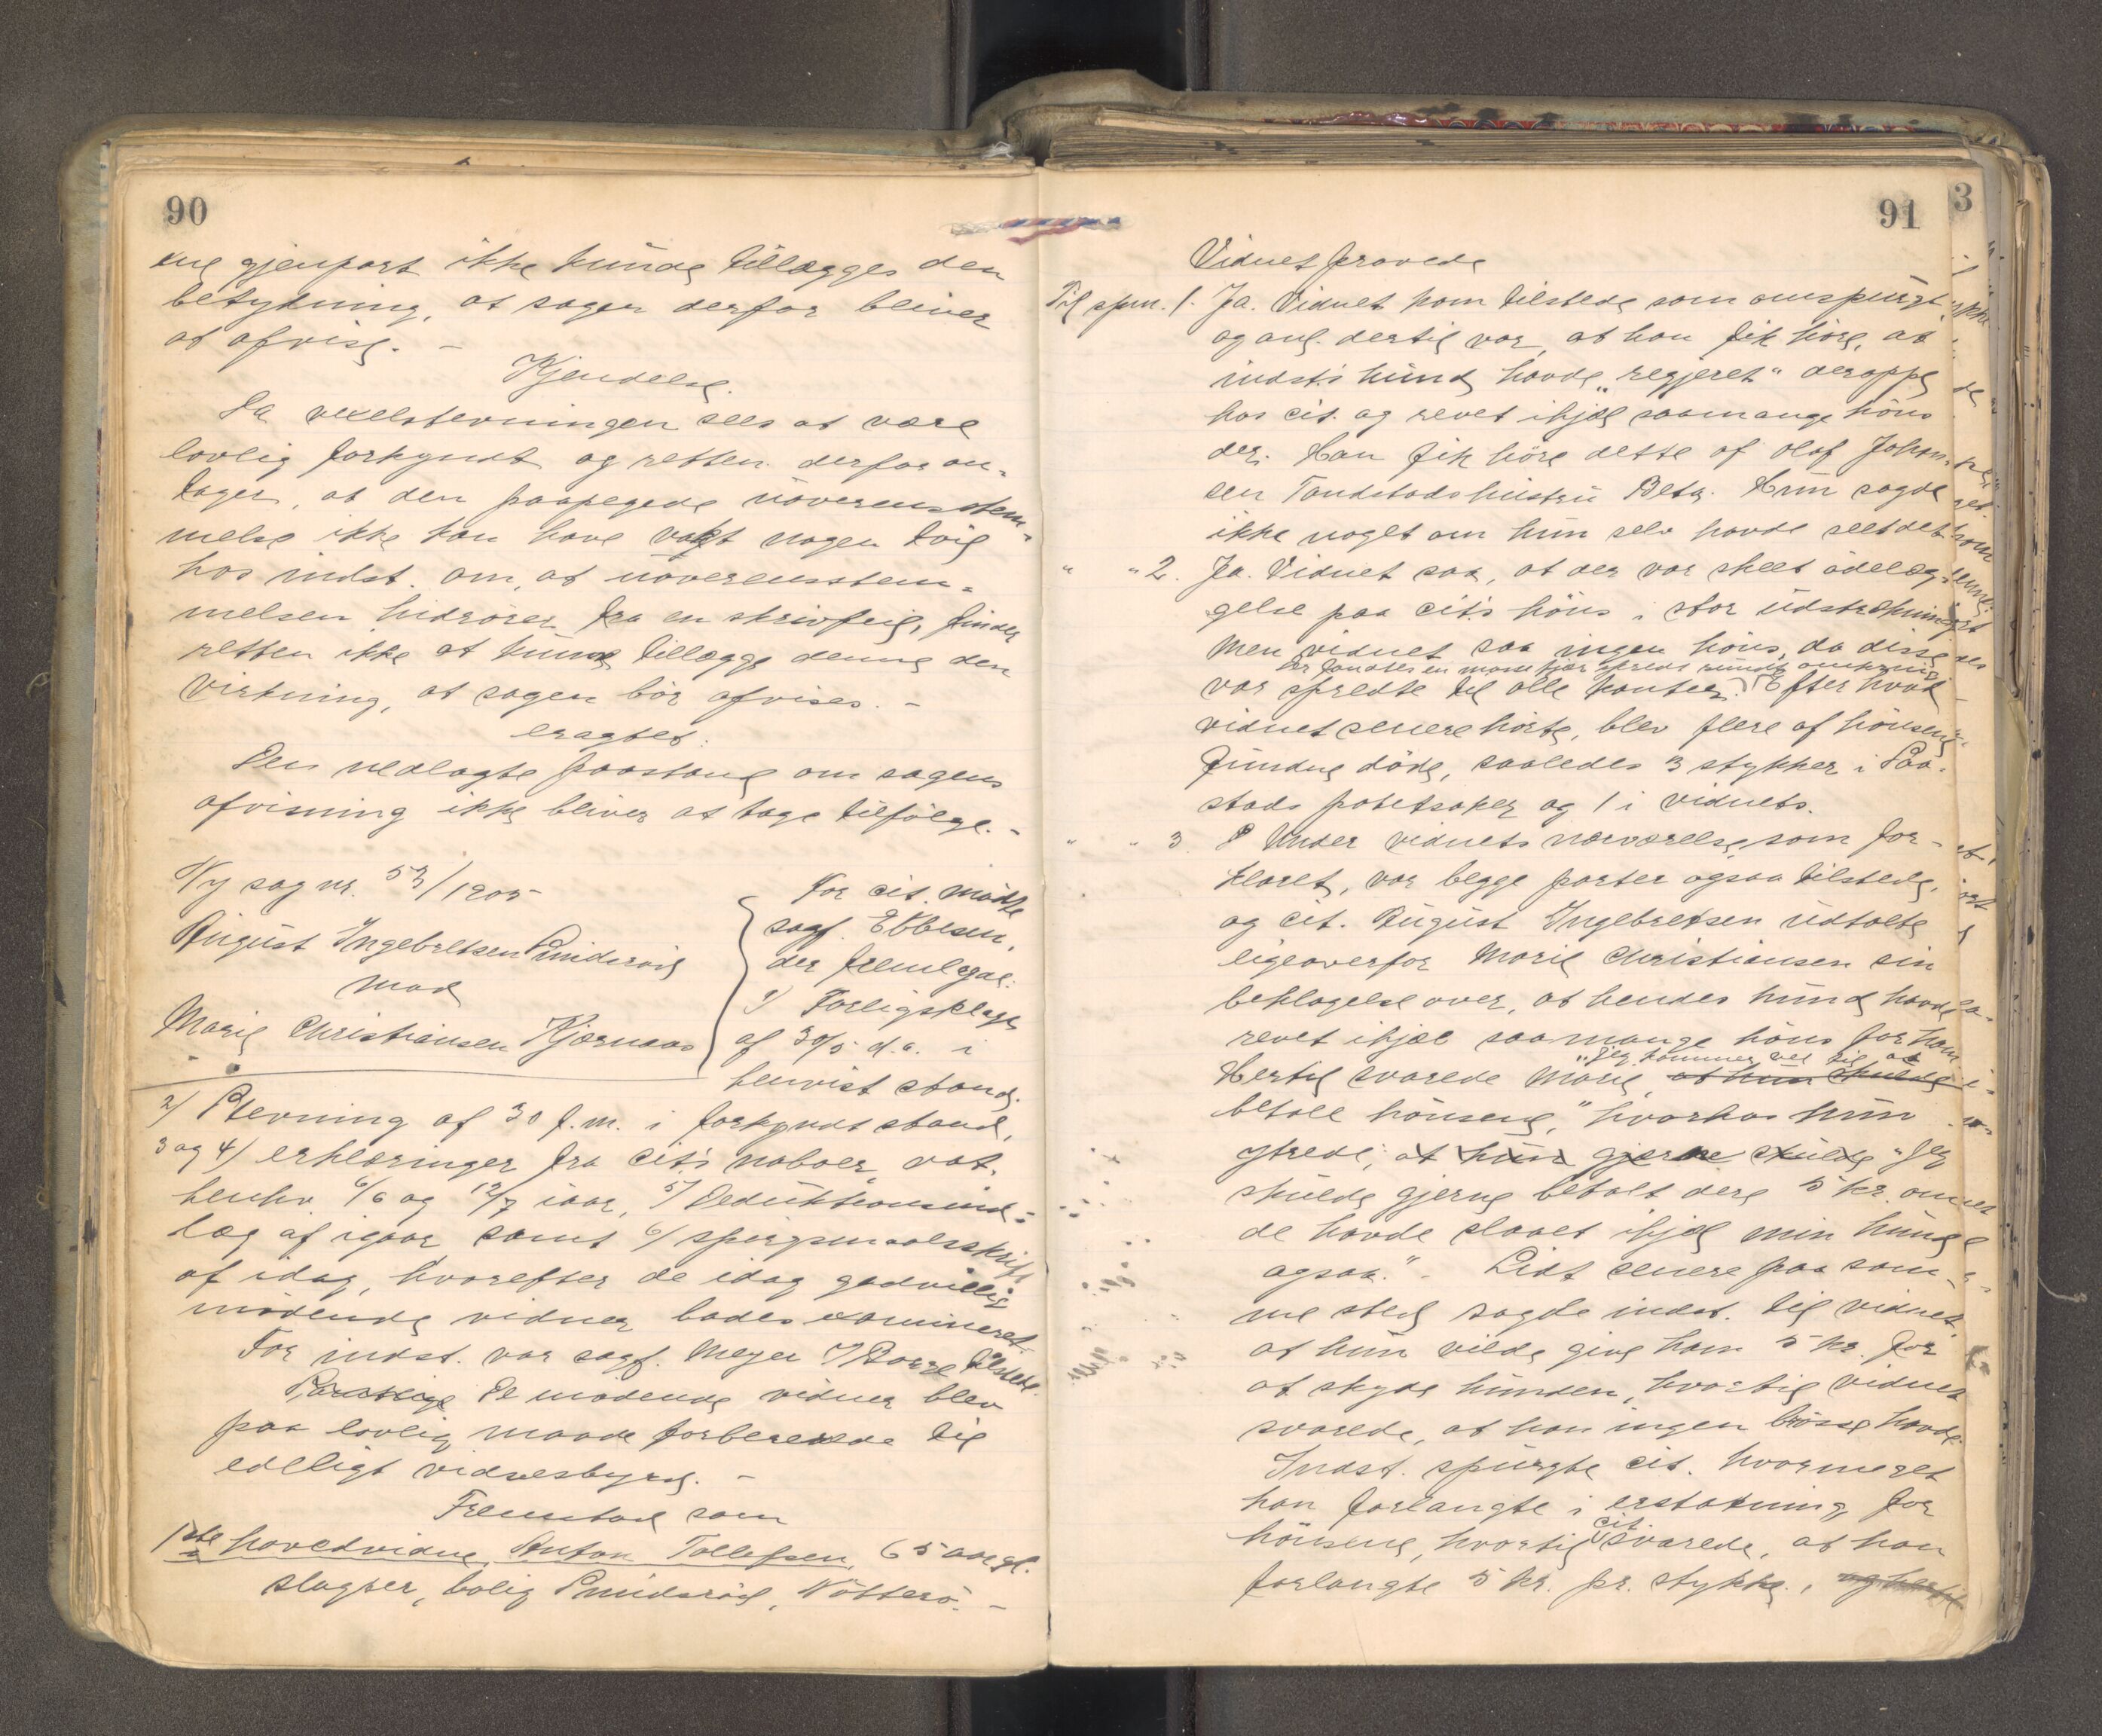 90
gjenpart ikke kunde tillægges den
betydning, at sagen derfor bliver
at afvise. –
Kjendelse.
Da vexelstevningen sees at være
lovlig forkyndt og retten derfor an-
tager, at den paapegede uoverensstem-
melse ikke kan have vakt nogen tvil
hos indst. om, at uoverensstem-
melsen hidrører fra en skrivfeil, finder
retten ikke at kunne tillægge denne den
virkning, at sagen bør afvises. –
eragtet:
Den nedlagte paastand om sagens
afvisning ikke bliver at tage tilfølge. –
Ny sag nr. 53/1905
August Ingebretsen Smidsrød
mod
Marie Christiansen Kjærnaas
For cit. mødte
sagf. Ebbesen,
der fremlagde:
1) Forligsklage
af 30/5 d.a. i
henvist stand.
2) Stevning af 30 f.m. i forkyndt stand,
3 og 4) erklæringer fra cit.s naboer, dat.
henhv. 6/6 og 12/7 iaar, 5) Deduktionsind-
læg af igaar samt 6) spørgsmaalsskrift
af idag, hvorefter de idag godvillig
mødende vidner bades examineret.
For indst. var sagf. Meyer tilstede.
De mødende vidner blev
paa lovlig maade forberedede til
edeligt vidnesbyrd. –
Fremstod som
1ste hovedvidne, Anton Tollefsen, 65 aar gl.
slagter, bolig Smidsrød, Nøtterø. –
91
3
Vidnet provede
Til spm. 1. Ja. Vidnet kom tilstede som omspurgt,
og anl. dertil var, at han fik høre, at
indst.s hund havde „regjeret“ deroppe
hos cit. og revet ihjel saamange høns
der. Han fik høre dette af Olaf Johan-
sen Tandstads hustru Hun sagde
ikke noget om hun selv havde seet det.
" " 2. Ja. Vidnet saa, at der var skeet ødelæg-
gelse paa cit.s høns i stor udstrækning
Men vidnet saa ingen høns, da disse
der fandtes en masse fjær spredt rundt omkring
var spredte til alle kanter. Efter hvad
vidnet senere hørte, blev flere af hønsene
fundne døde, saaledes 3 stykker i
stads potetsaker og 1 i vidnets.
" " 3 Under vidnets nærværelse, som for-
klaret, var begge parter ogsaa tilstede,
og cit. August Ingebretsen udtalte
ligeoverfor Marie Christiansen sin
beklagelse over, at hendes hund havde
revet ihjæl saamange høns for ham
„Jeg kommer vel til at
Hertil svarede Marie, at hun skulde
betale hønsene,“ hvorhos hun
ytrede, at hun gjerne skulde „Jeg
skulde gjerne betalt dere 5 kr. om
de havde slaaet ihjel min hund
ogsaa.“ – Lidt senere paa sam-
me sted sagde indst. til vidnet,
at hun vilde give ham 5 kr. for
at skyde hunden, hvortil vidnet
svarede, at han ingen bøsse havde.
Indst. spurgte cit. hvormeget
han forlangte i erstatning for
cit.
hønsene, hvortil svarede, at han
forlangte 5 kr. pr. stykke.,